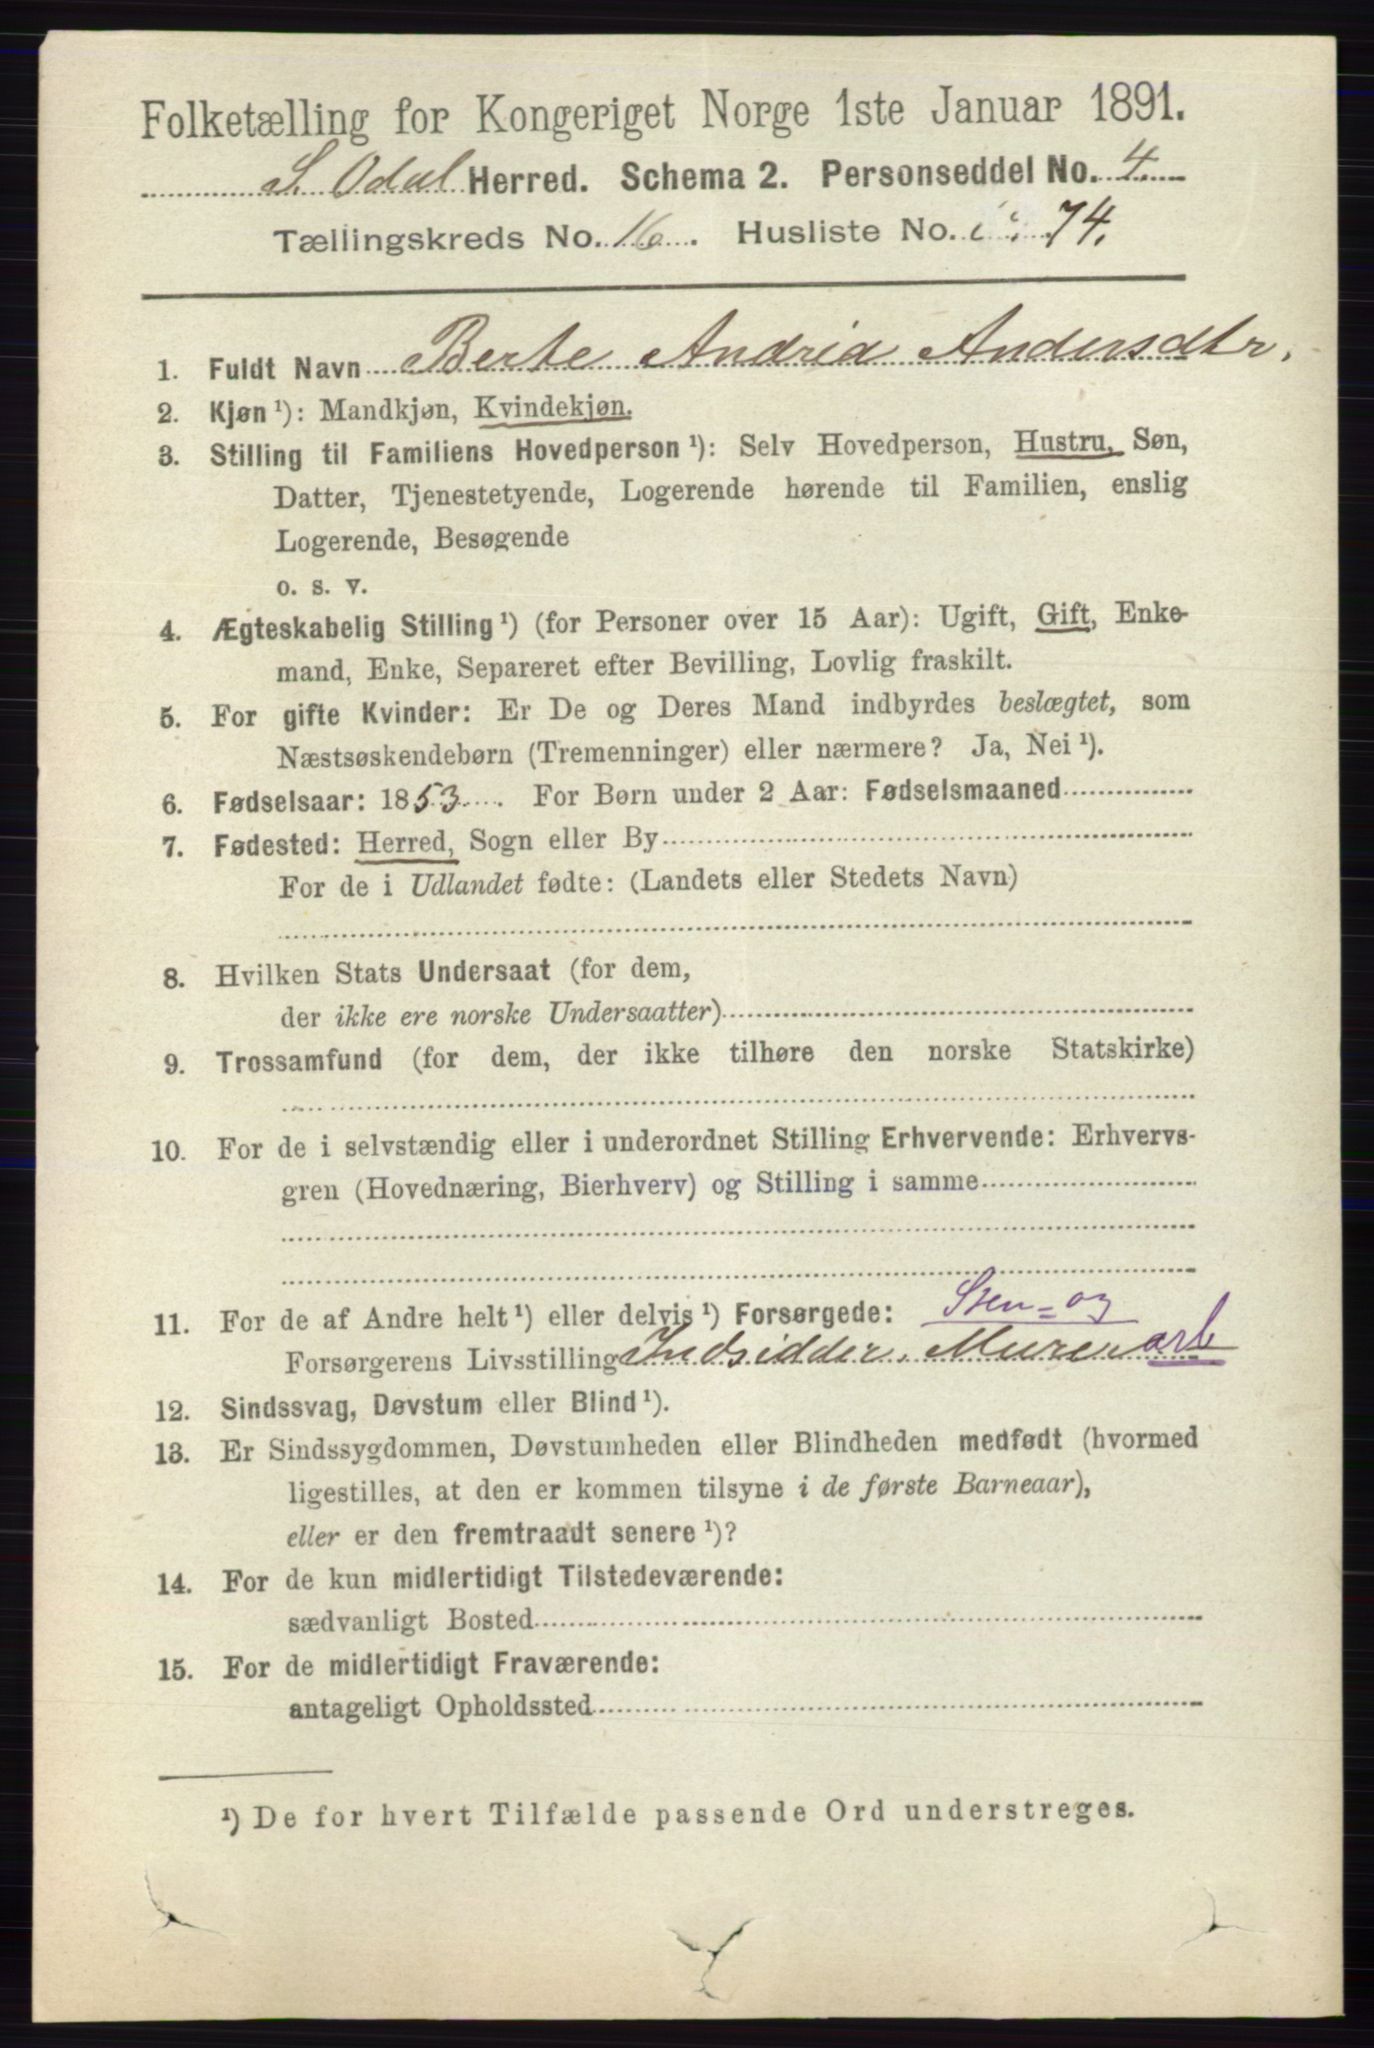 Folketælling for Kongeriget Norge 1ste Januar 1891.
S. Odal Herred. Schema 2. Personseddel No. 4.
Tællingskreds No. 16. Husliste No. 74.
1. Fuldt Navn Berte Andria Andersdtr.
2. Kjøn ¹): Mandkjøn, Kvindekjøn.
3. Stilling til Familiens Hovedperson ¹): Selv Hovedperson, Hustru, Søn,
Datter, Tjenestetyende, Logerende hørende til Familien, enslig
Logerende, Besøgende
o. s. v.
4. Ægteskabelig Stilling ¹) (for Personer over 15 Aar): Ugift, Gift, Enke-
mand, Enke, Separeret efter Bevilling, Lovlig fraskilt.
5. For gifte Kvinder: Er De og Deres Mand indbyrdes beslægtet, som
Næstsøskendebørn (Tremenninger) eller nærmere? Ja, Nei ¹).
6. Fødselsaar: 1853. For Børn under 2 Aar: Fødselsmaaned
7. Fødested: Herred, Sogn eller By
For de i Udlandet fødte: (Landets eller Stedets Navn)
8. Hvilken Stats Undersaat (for dem,
der ikke ere norske Undersaatter)
9. Trossamfund (for dem, der ikke tilhøre den norske Statskirke)
10. For de i selvstændig eller i underordnet Stilling Erhvervende: Erhvervs-
gren (Hovednæring, Bierhverv) og Stilling i samme
11. For de af Andre helt ¹) eller delvis ¹) Forsørgede: Sten- og
Forsørgerens Livsstilling Indsidder, Murerarb
12. Sindssvag, Døvstum eller Blind ¹).
13. Er Sindssygdommen, Døvstumheden eller Blindheden medfødt (hvormed
ligestilles, at den er kommen tilsyne i de første Barneaar),
eller er den fremtraadt senere ¹)?
14. For de kun midlertidigt Tilstedeværende:
sædvanligt Bosted
15. For de midlertidigt Fraværende:
antageligt Opholdssted
¹) De for hvert Tilfælde passende Ord understreges.